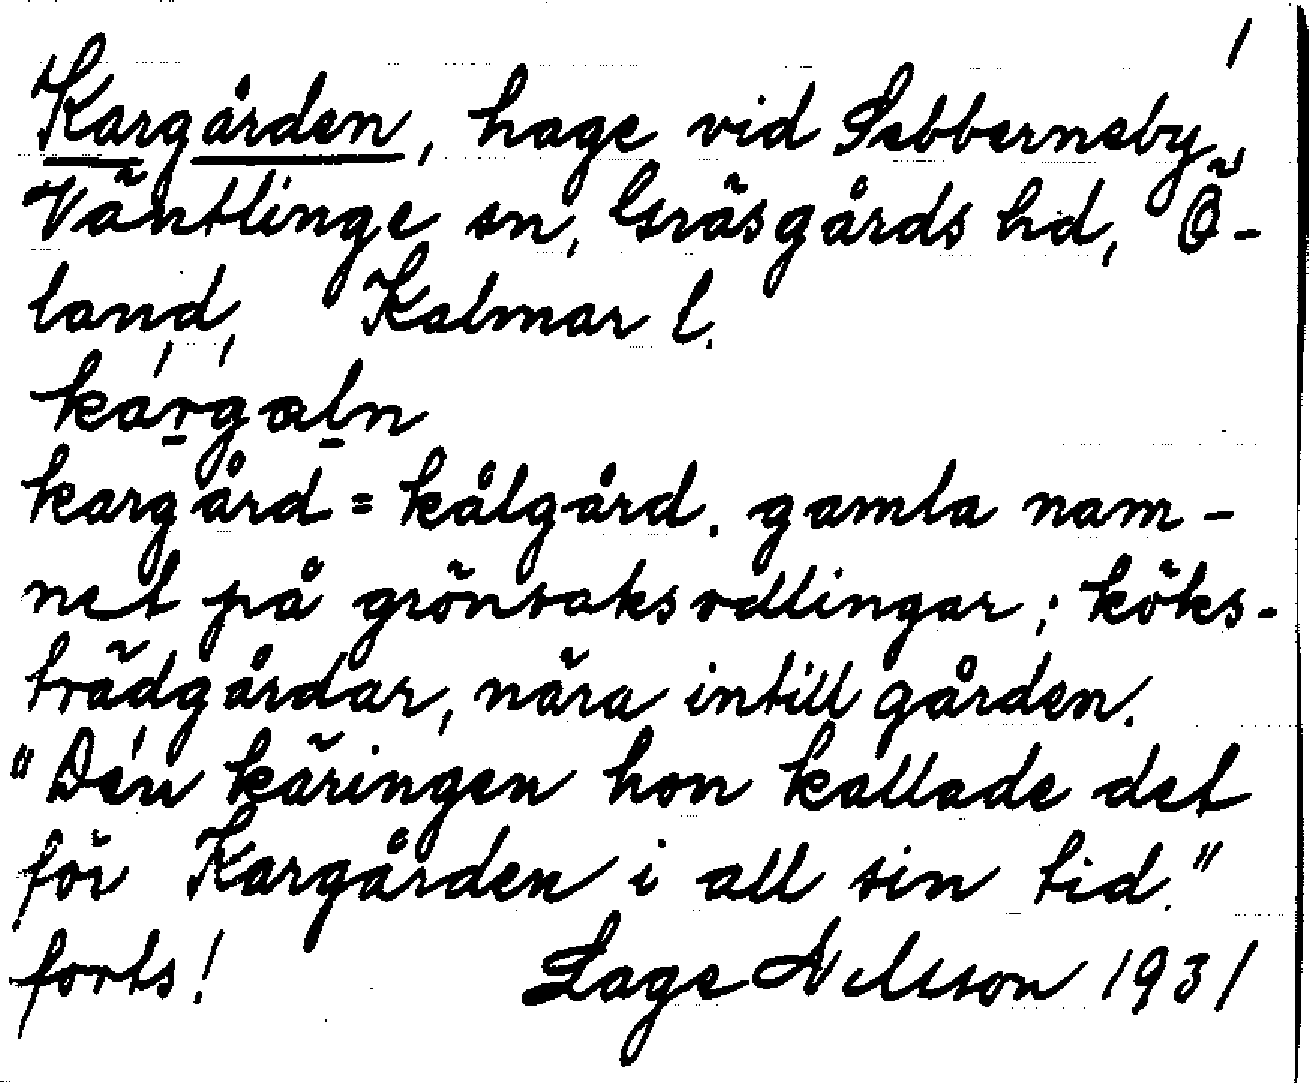 /
Kargården, hage vid Sebberneby,
Väntlinge sn, Gräsgårds hd, Ö-
land, Kalmar l.
ka´rga´ln
kargård = kålgård. gamla nam-
net på grönsaksodlingar; köks-
trädgårdar, nära intill gården.
"Den käringen hon kallade det
för Kargården i all sin tid."
forts! Lage Nilsson 1931